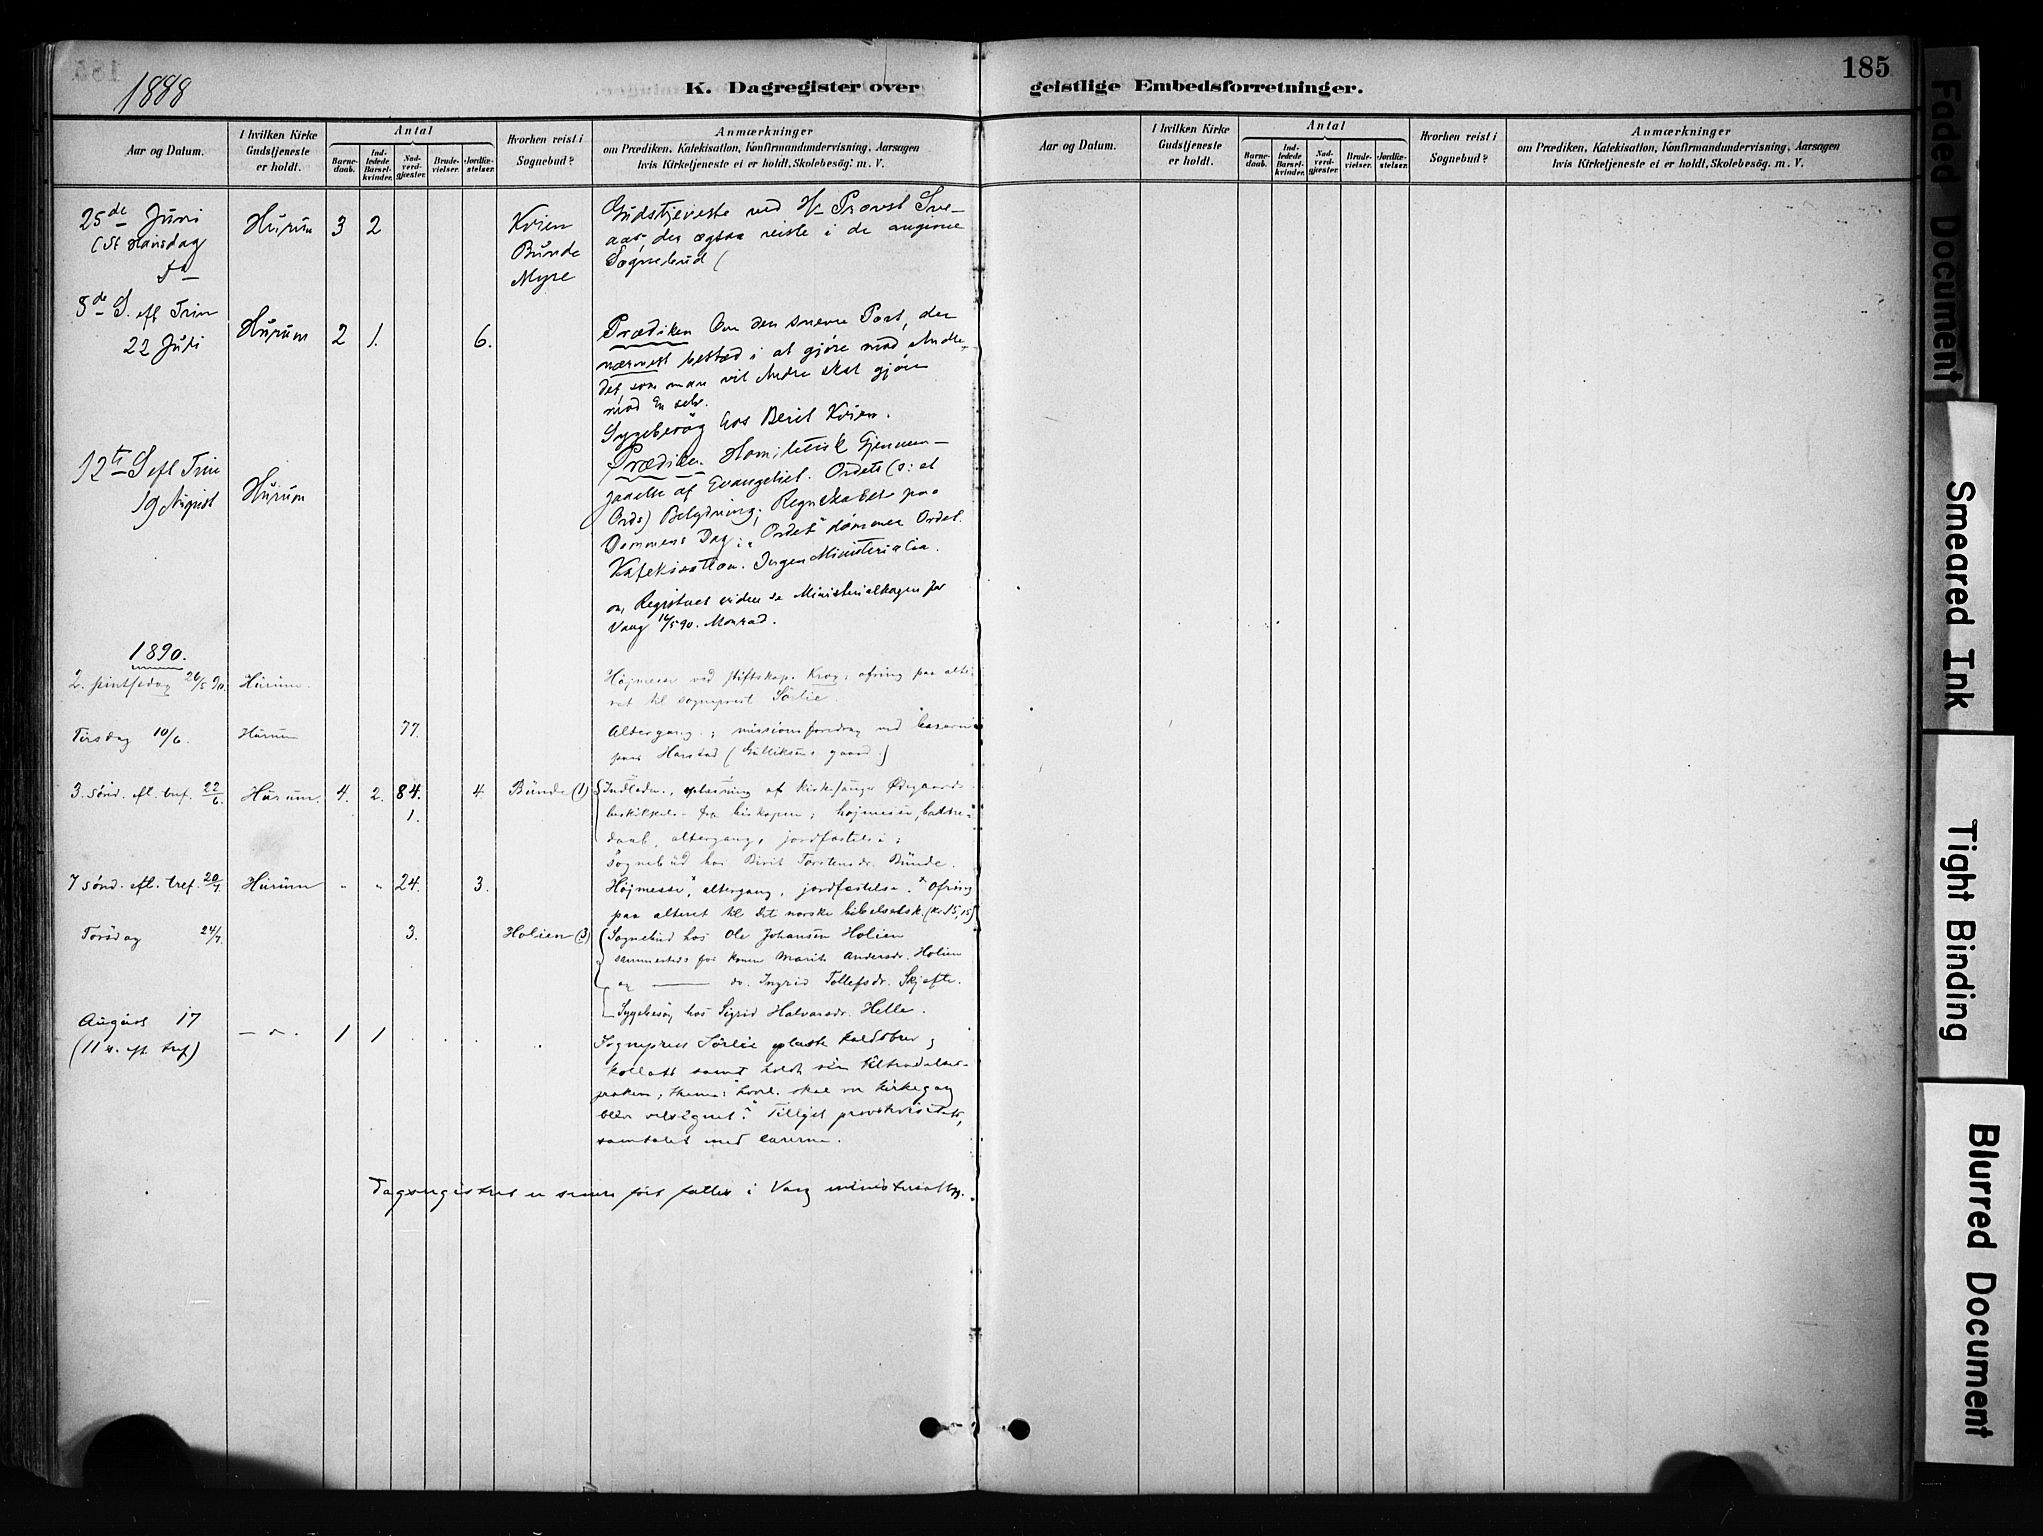 1888
K. Dagregister over geistlige Embedsforretninger.
185
Aar og Datum.
I hvilken Kirke Gudstjeneste er holdt.
Antal
Barnedaab.
Indledede Barselkvinder.
Nadverdgjæster.
Brudevielser.
Jordfæstelser.
Hvorhen reist i Sognebud?
Anmærkninger
om Prædiken, Katekisation, Konfirmandundervisning, Aarsagen
hvis Kirketjeneste ei er holdt, Skolebesög. m. V.
Aar og Datum.
I hvilken Kirke Gudstjeneste er holdt.
Antal
Barnedaab.
Indledede Barselkvinder.
Nadverdgjæster.
Brudevielser.
Jordfæstelser.
Hvorhen reist i Sognebud?
Anmærkninger
om Prædiken, Katekisation, Konfirmandundervisning, Aarsagen
hvis Kirketjeneste ei er holdt, Skolebesög. m. V.
25de Juni Hurum 3 2 Kvien Gudstjeneste ved Hr Provst
(St Hansdag Bunde der ogsaa reiste i de angivne
Myre Sognebud
8de S. eft Trin
22 Juli Hurum 2 1. 6. Prædiken Om den snevre Port, der
nærmest bestod i at gjøre mod Andre
det, som man vil Andre skal gjøre
mod En selv.
Sygebesøg hos Berit Kvien.
12te S eft Trin Prædiken. Homiletisk Gjennem-
19 August Hurum gaaelse af Evangeliet. Ordets (ɔ: et
Ords) Betydning; Regnskabet paa
Dommens Dag; "Ordet" dømmer Ordet.
Katekisation. Ingen Ministerialia.
om Registret videre se Ministerialbogen for
Vang 14/5 90. Monrad.
1890.
2. pintsedag 26/5 90. Hurum. Højmesse ved stiftskap. Krog; ofring paa alte-
ret til sogneprest Sørlie.
Tirsdag 10/6. Hurum 77. Altergang; missionsforedrag ved
paa Harstad (Gulliksens gaard.)
3. sønd. eft. tref. 22/6. Hurum. 4. 2. 84. 4. Bunde (1) oplæsning af kirkesanger Ødegaards
1. beskikkelse fra biskopen; højmesse,
daab, altergang, jordfæstelse;
Sognebud hos Birit Torstensdr. Bunde.
7 sønd. eft. tref. 20/7. Hurum " " 24. 3. Højmesse, altergang, jordfæstelse. Ofring
paa alteret til det norske bibelselsk. (Kr 15,15)
Torsdag 24/7. 3. Holien (3) Sognebud hos Ole Johansen Holien
sammesteds for konen Marit Andersdr. Holien
og — do. Ingrid Tollefsdr. Skjefte.
Sygebesøg hos Sigrid Halvorsdr. Helle.
August 17 — " — 1 1 Sogneprest Sørlie oplæste kaldsbrev og
(11 s. eft tref) kollats samt holdt sin tiltrædelses-
præken; thema: hvorl. skal vor kirkegang
blive velsignet? Tillyst provstvisitats,
samtalet med lærerne.
Dagregistret er senere ført fælles i Vang ministerialbog.
Faded Document
Smeared Ink
Tight Binding
Blurred Document